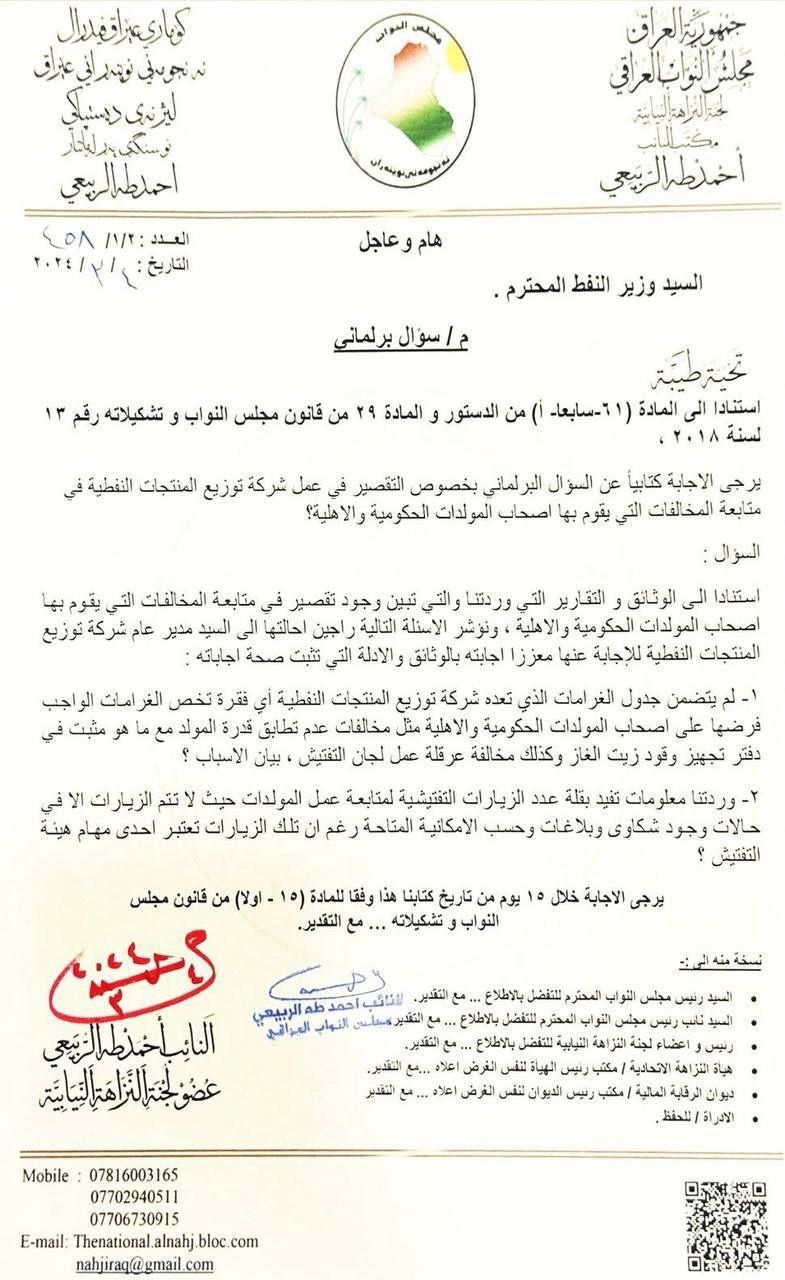 جمهورية العراق
مجلس النواب العراقي
لجنة النزاهة النيابية
مكتب النائب
أحمد طه الربيعي
مجلس النواب
ئه نجومه ني نوينه ران
كوماري عيراق فيدرال
ئه نجومه ني نوينه راني عيراق
ليژنه ی ده ستپاكي
احمد طه الربيعي
العدد : ١/٢/ ٤٥٨
التاريخ : ٤ / ٣ / ٢٠٢٤
هام وعاجل
السيد وزير النفط المحترم .
م / سؤال برلماني
تحية طيبة
استنادا الى المادة (٦١-سابعا- أ) من الدستور و المادة ٢٩ من قانون مجلس النواب و تشكيلاته رقم ١٣
لسنة ٢٠١٨ ،
يرجى الاجابة كتابياً عن السؤال البرلماني بخصوص التقصير في عمل شركة توزيع المنتجات النفطية في
متابعة المخالفات التي يقوم بها اصحاب المولدات الحكومية والاهلية؟
السؤال :
استنادا الى الوثائق و التقارير التي وردتنا والتي تبين وجود تقصير في متابعة المخالفات التي يقوم بها
اصحاب المولدات الحكومية والاهلية ، ونؤشر الاسئلة التالية راجين احالتها الى السيد مدير عام شركة توزيع
المنتجات النفطية للإجابة عنها معززا اجابته بالوثائق والادلة التي تثبت صحة اجاباته :
١- لم يتضمن جدول الغرامات الذي تعده شركة توزيع المنتجات النفطية أي فقرة تخص الغرامات الواجب
فرضها على اصحاب المولدات الحكومية والاهلية مثل مخالفات عدم تطابق قدرة المولد مع ما هو مثبت في
دفتر تجهيز وقود زيت الغاز وكذلك مخالفة عرقلة عمل لجان التفتيش ، بيان الاسباب ؟
٢- وردتنا معلومات تفيد بقلة عدد الزيارات التفتيشية لمتابعة عمل المولدات حيث لا تتم الزيارات الا في
حالات وجود شكاوى وبلاغات وحسب الامكانية المتاحة رغم ان تلك الزيارات تعتبر احدى مهام هيئة
التفتيش ؟
يرجى الاجابة خلال ١٥ يوم من تاريخ كتابنا هذا وفقا للمادة (١٥ - اولا) من قانون مجلس
النواب و تشكيلاته ... مع التقدير.
نسخة منه الى :-
السيد رئيس مجلس النواب المحترم للتفضل بالاطلاع ... مع التقدير.
السيد نائب رئيس مجلس النواب المحترم للتفضل بالاطلاع ... مع التقدير
رئيس و اعضاء لجنة النزاهة النيابية للتفضل بالاطلاع ... مع التقدير.
هيأة النزاهة الاتحادية / مكتب رئيس الهيأة لنفس الغرض اعلاه ...مع التقدير.
ديوان الرقابة المالية / مكتب رئيس الديوان لنفس الغرض اعلاه ... مع التقدير
الادراة / للحفظ .
النائب احمد طه الربيعي
مجلس النواب العراقي
٢٠٢٤
٤
٣
النائب أحمد طه الربيعي
عضو لجنة النزاهة النيابية
Mobile : 07816003165
07702940511
07706730915
E-mail: Thenational.alnahj.bloc.com
nahjiraq@gmail.com